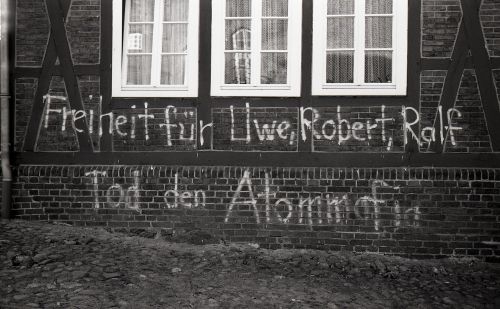 Freiheit für Uwe, Robert, Ralf
Tod den